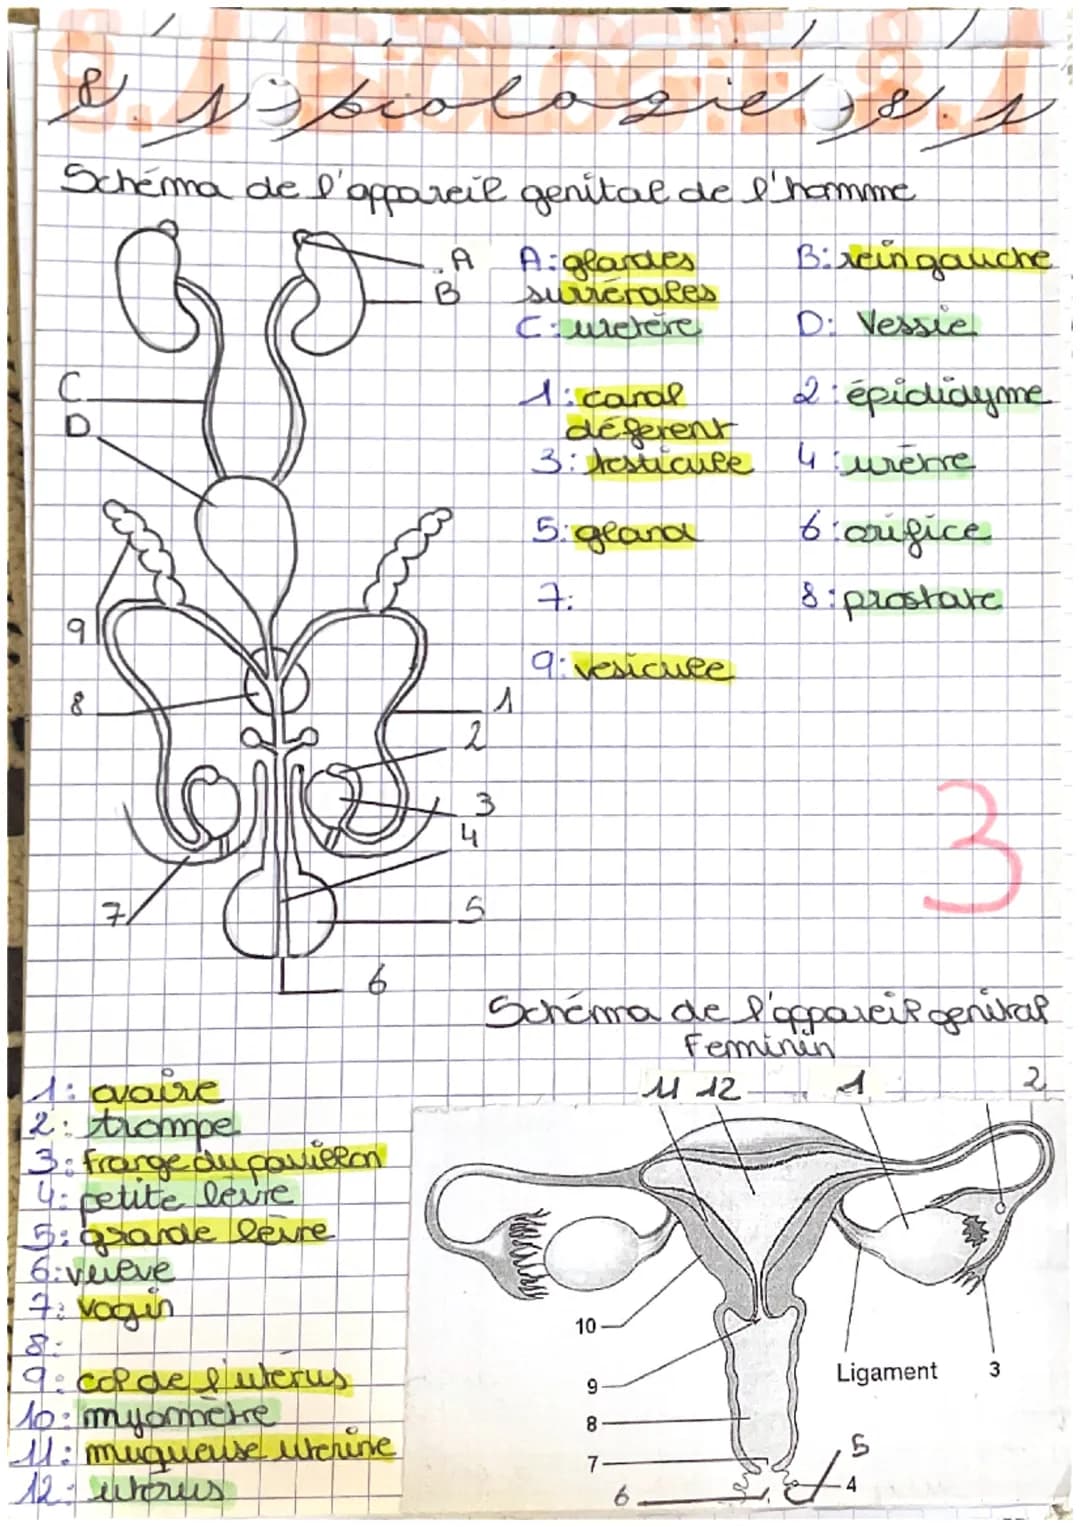 8.1 BIOLOGIE 8.1
8.1 - biologie - 8.1
Schéma de l'appareil genital de l'homme
A
B
C
D
9
8
7
1
2
3
4
5
6
A: glandes
surrénales
B: rein gauche
C: uretère
D: Vessie
1: canal
déferent
2: épididyme
3: testicule
4: urètre
5: gland
6: orifice
7:
8: prostate
9: vesicule
3
Schéma de l'appareil genital
Feminin
1: ovaire
2: trompe
3: frange du pavillon
4: petite lèvre
5: grande lèvre
6: vulve
7: vagin
8:
9: col de l'utérus
10: myomètre
11: muqueuse uterine
12: utérus
11 12 1 2
10
9
8
7
6
Ligament
3
5
4